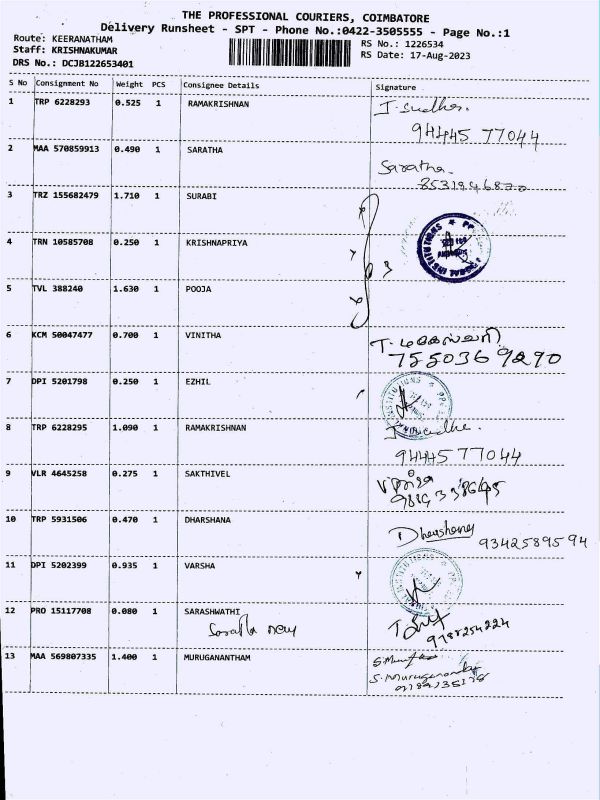 THE PROFESSIONAL COURIERS, COIMBATORE
Delivery Runsheet - SPT - Phone No.:0422-3505555 - Page No.:1
Route: KEERANATHAM
Staff: KRISHNAKUMAR
DRS No.: DCJB122653401
RS No.: 1226534
RS Date: 17-Aug-2023
S No Consignment No Weight PCS Consignee Details Signature
1 TRP 6228293 0.525 1 RAMAKRISHNAN J. Sudha.
94445 77044
2 MAA 570859913 0.490 1 SARATHA Saratha.
3 TRZ 155682479 1.710 1 SURABI
4 TRN 10585708 0.250 1 KRISHNAPRIYA
5 TVL 388240 1.630 1 POOJA
6 KCM 50047477 0.700 1 VINITHA T. மகேஸ்வரி
7550369290
7 DPI 5201798 0.250 1 EZHIL
8 TRP 6228295 1.090 1 RAMAKRISHNAN J. Sudha.
94445 77044
9 VLR 4645258 0.275 1 SAKTHIVEL
10 TRP 5931506 0.470 1 DHARSHANA Dharshana 9342589594
11 DPI 5202399 0.935 1 VARSHA
12 PRO 15117708 0.080 1 SARASHWATHI
9787254224
13 MAA 569807335 1.400 1 MURUGANANTHAM
S. Muruganandan